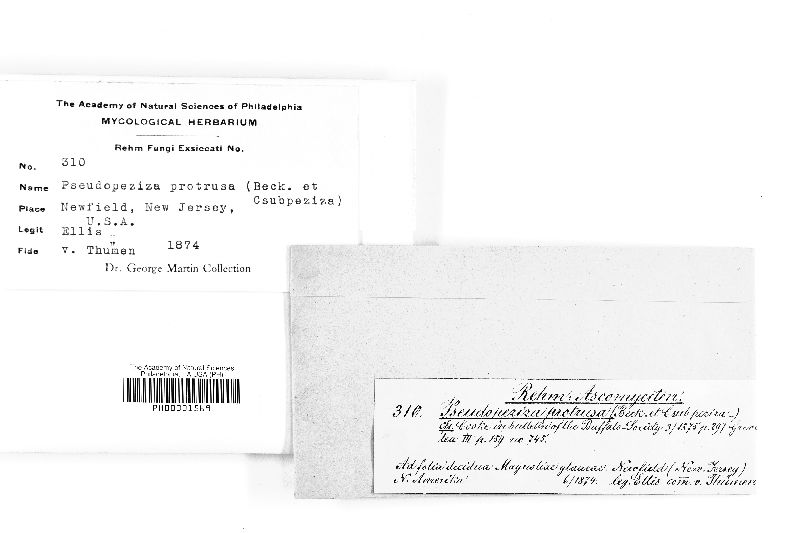 The Academy of Natural Sciences of Philadelphia
MYCOLOGICAL HERBARIUM
Rehm Fungi Exsiccati No.
No. 310
Name Pseudopeziza protrusa (Beck. et
Csubpeziza)
Place Newfield, New Jersey,
U.S.A.
Legit Ellis
Fide v. Thümen 1874
Dr. George Martin Collection
The Academy of Natural Sciences
Philadelphia, PA USA (PH)
PH00001569
Rehm: Ascomyceten.
310. Pseudopeziza protrusa (Beck. et C sub peziza)
Cooke in bulletin of the Buffalo Society 3/1875 p. 297
lea III p. 159 no 745.
Ad folia decidua Magnoliae glaucae. Newfield (New Jersey)
N. Amerika 6/1874. leg. Ellis com. v. Thümen